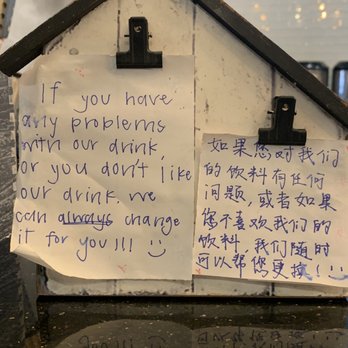 If you have
any problems
with our drink,
or you don't like
our drink, we
can always change
it for you!!!
如果您对我们
的饮料有任何
问题，或者如果
您不喜欢我们的
饮料，我们随时
可以帮您更换！